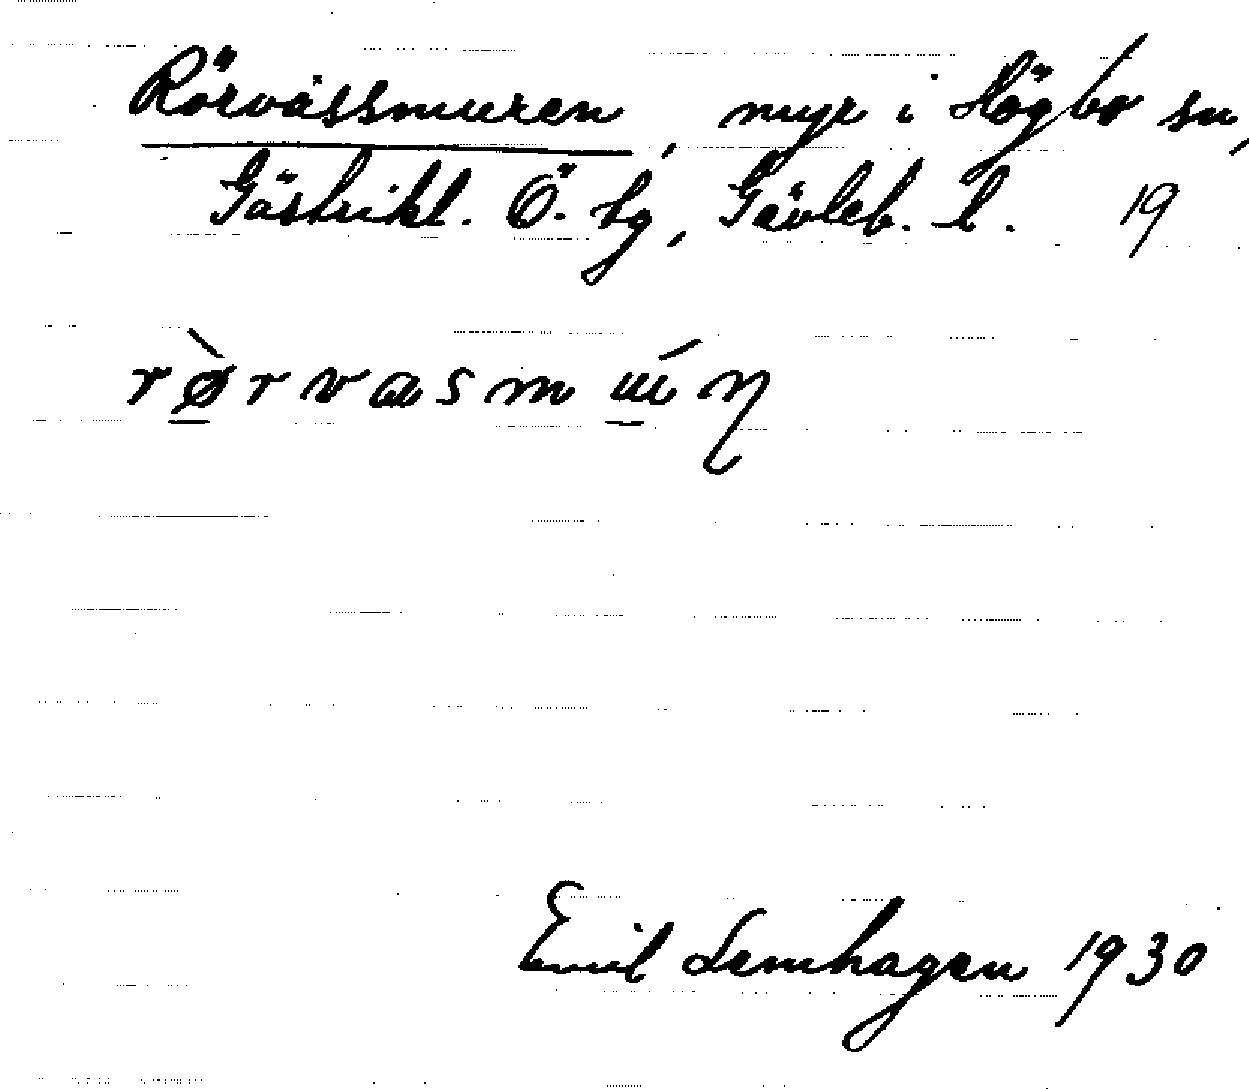 Rörvåssmuren, myr i Högbo sn,
Gästrikl. Ö. tg, Gävleb. l. 19
rø̀rvasmúɳ
Emil Lemhagen 1930